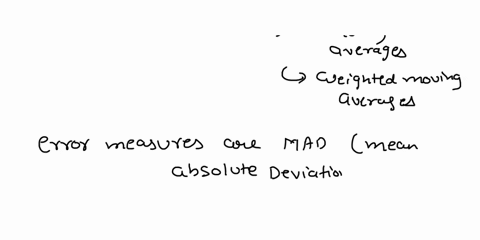 averages
↳ weighted moving
averages
error measures are MAD (mean
absolute Deviation